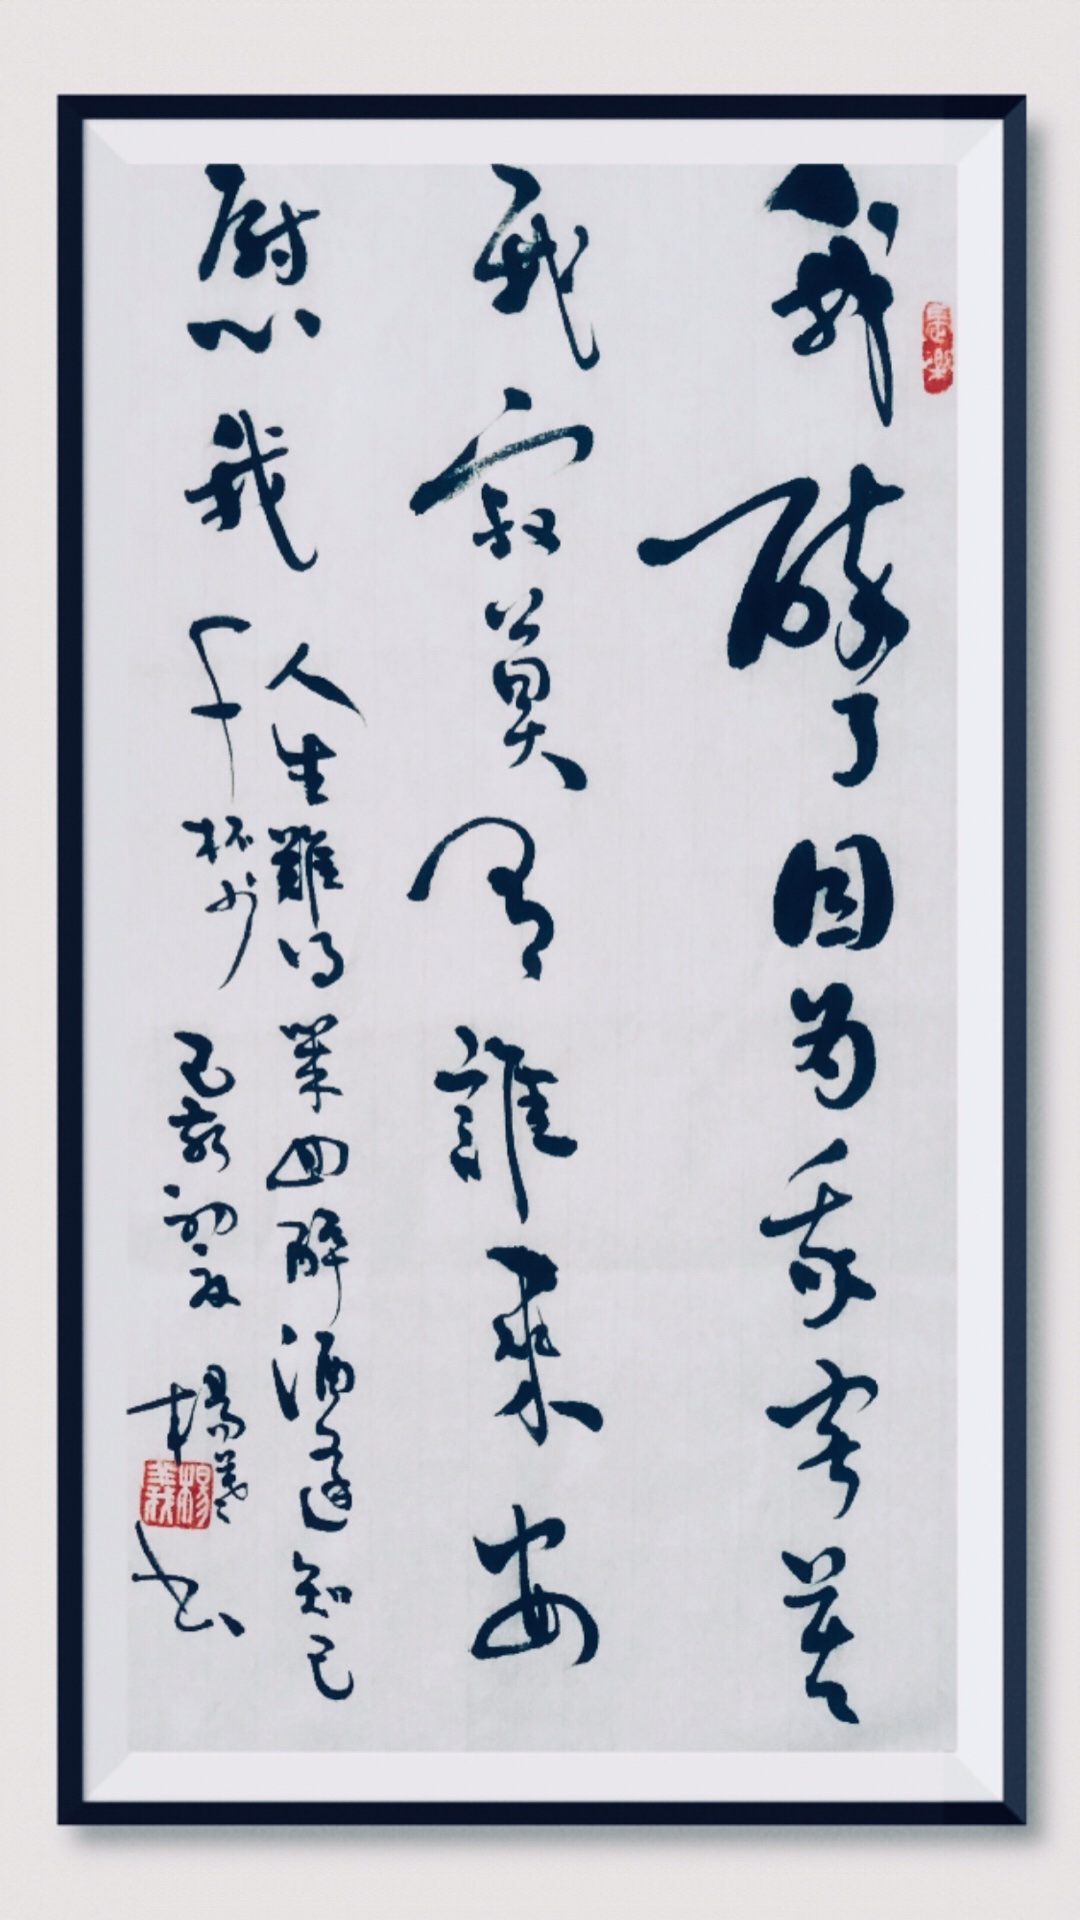 我醉了因为我寂寞
我寂寞有誰来安
慰我
人生難得幾回醉酒逢知己
千杯少 己亥初夏 楊義书
楊義